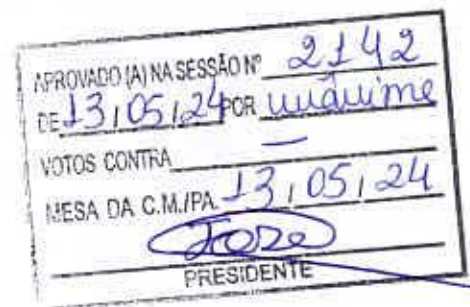 APROVADO (A) NA SESSÃO Nº 2142
DE 13,05,24 POR unânime
VOTOS CONTRA —
MESA DA C.M./PA. 13,05,24
PRESIDENTE